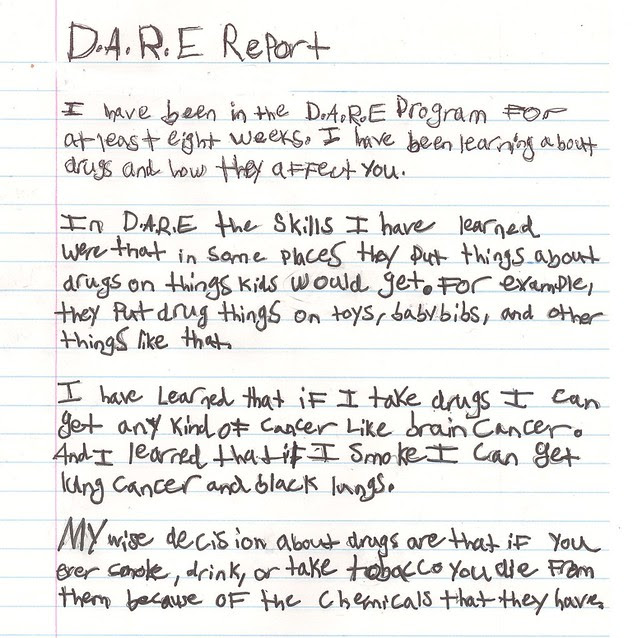 D.A.R.E Report
I have been in the D.A.R.E Program For
at least eight weeks. I have been learning about
drugs and how they affect you.
In D.A.R.E the Skills I have learned
were that in some places they put things about
drugs on things kids would get. For example,
they put drug things on toys, baby bibs, and other
things like that.
I have Learned that if I take drugs I can
get any kind of cancer like brain cancer.
And I learred that if I smoke I can get
lung cancer and black lungs.
My wise decision about drugs are that if you
ever smoke, drink, or take tobacco you die from
them because of the chemicals that they have.